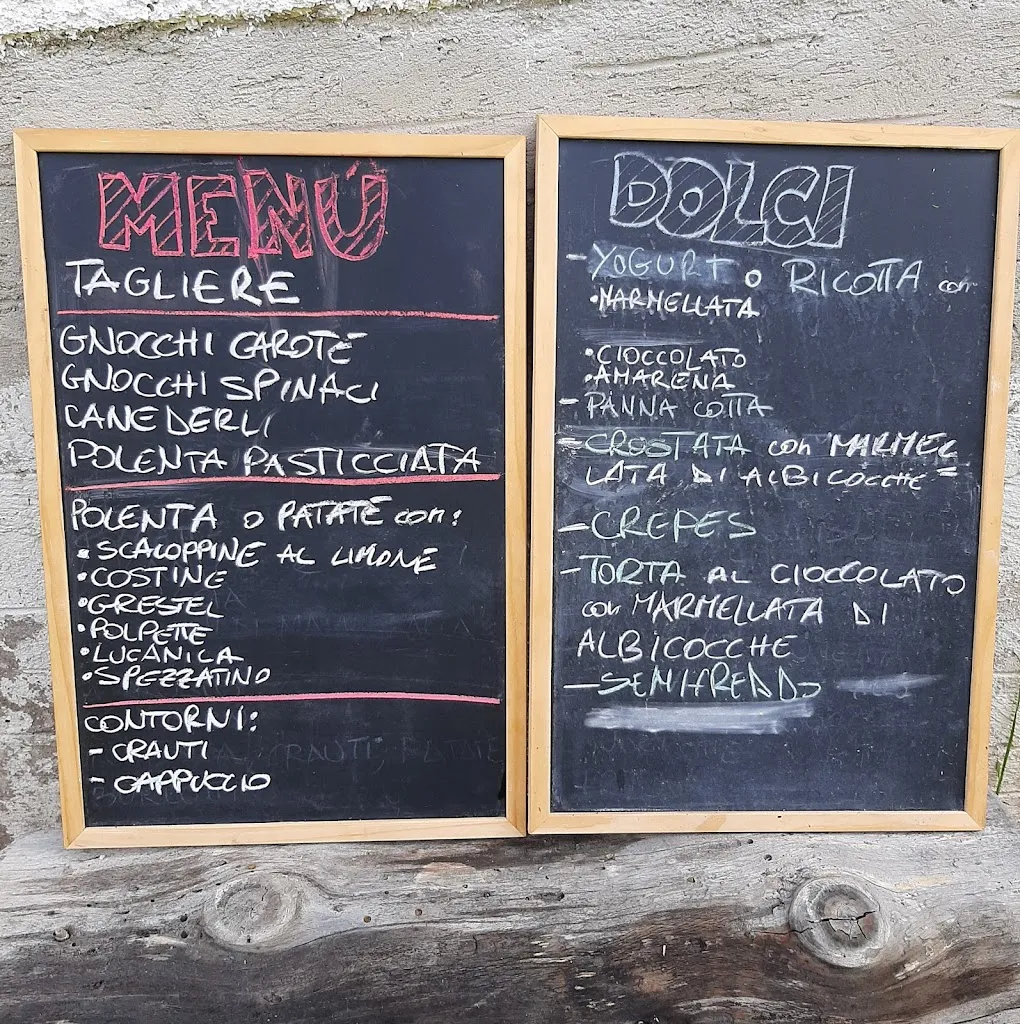 MENÚ
TAGLIERE
GNOCCHI CAROTE
GNOCCHI SPINACI
CANEDERLI
POLENTA PASTICCIATA
POLENTA O PATATE con:
• SCALOPPINE AL LIMONE
• COSTINE
• GRESTEL
• POLPETTE
• LUCANICA
• SPEZZATINO
CONTORNI:
- CRAUTI
- CAPPUCCIO
DOLCI
- YOGURT o RICOTTA con
• MARMELLATA
• CIOCCOLATO
• AMARENA
- PANNA COTTA
- CROSTATA con MARMEL
LATA DI ALBICOCCHE
- CREPES
- TORTA AL CIOCCOLATO
con MARMELLATA DI
ALBICOCCHE
- SEMIFREDDO